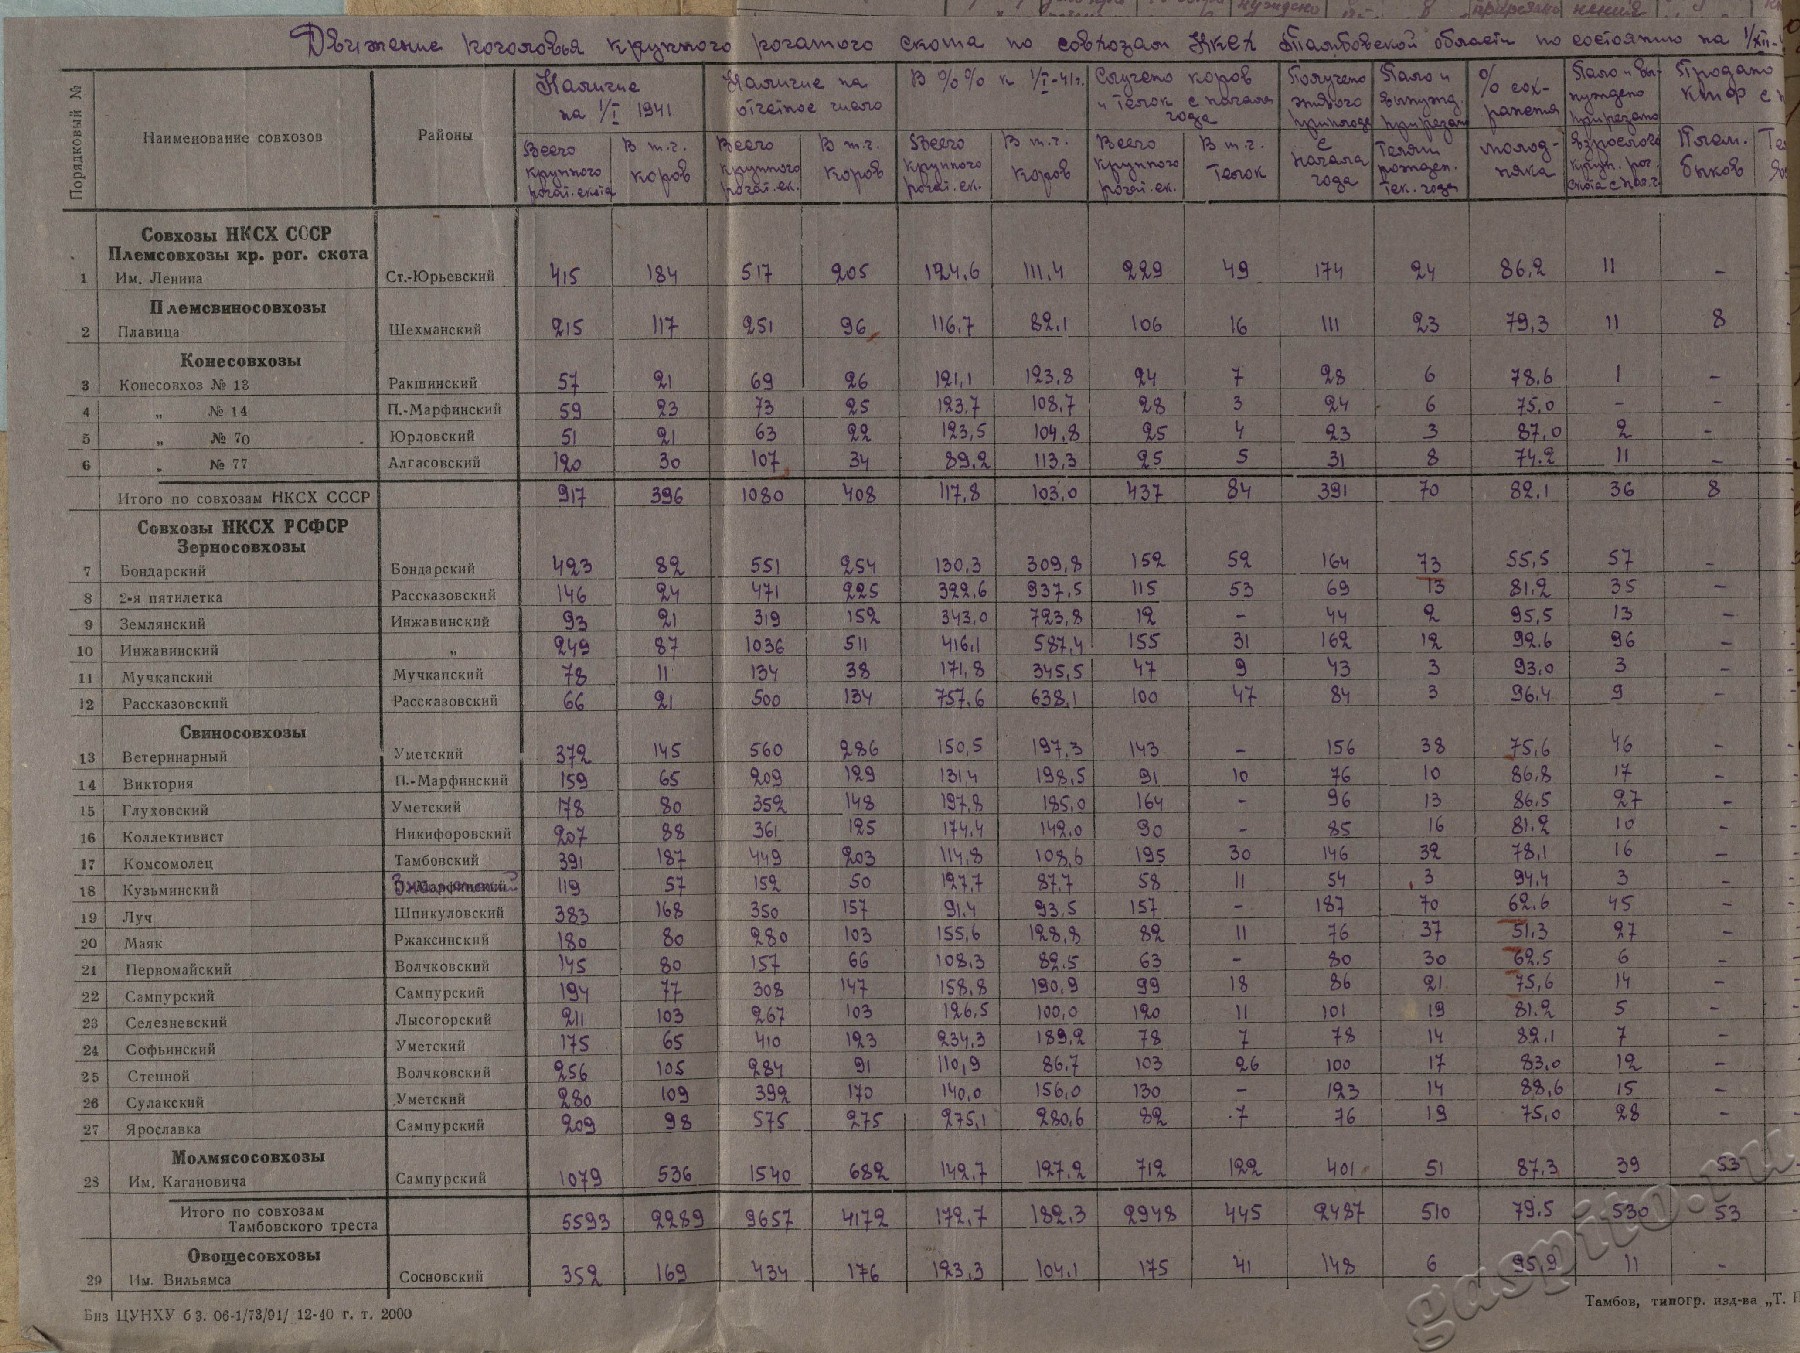 Движение поголовья крупного рогатого скота по совхозам НКСХ Тамбовской области по состоянию на 1/XII-
Порядковый № | Наименование совхозов | Районы | Наличие на 1/I 1941 | Наличие на отчетное число | В %% к 1/I-41г. | Случено коров и телок с начала года | Получено живого приплода с начала года | Пало и вынужд. прирезан. телят рожден. тек. года | % сохранения молодняка | Пало и вынуждено прирезано взрослого крупн. рог. скота с нач. г. | Продано
Всего крупного рогат. скота | В т.ч. коров | Всего крупного рогат. ск. | В т.ч. коров | Всего крупного рогат. ск. | В т.ч. коров | Всего крупного рогат. ск. | В т.ч. телок | Плем. быков
Совхозы НКСХ СССР
Племсовхозы кр. рог. скота
1 Им. Ленина Ст.-Юрьевский 415 184 517 205 124,6 111,4 229 49 174 24 86,2 11 –
Племсвиносовхозы
2 Плавица Шехманский 215 117 251 96 116,7 82,1 106 16 111 23 79,3 11 8
Конесовхозы
3 Конесовхоз № 13 Ракшинский 57 21 69 26 121,1 123,8 24 7 28 6 78,6 1 –
4 „ № 14 П.-Марфинский 59 23 73 25 123,7 108,7 28 3 24 6 75,0 – –
5 „ № 70 Юрловский 51 21 63 22 123,5 104,8 25 4 23 3 87,0 2 –
6 „ № 77 Алгасовский 120 30 107 34 89,2 113,3 25 5 31 8 74,2 11 –
Итого по совхозам НКСХ СССР 917 396 1080 408 117,8 103,0 437 84 391 70 82,1 36 8
Совхозы НКСХ РСФСР
Зерносовхозы
7 Бондарский Бондарский 423 82 551 254 130,3 309,8 152 52 164 73 55,5 57 –
8 2-я пятилетка Рассказовский 146 24 471 225 322,6 937,5 115 53 69 13 81,2 35 –
9 Землянский Инжавинский 93 21 319 152 343,0 723,8 12 – 44 2 95,5 13 –
10 Инжавинский „ 249 87 1036 511 416,1 587,4 155 31 162 12 92,6 96 –
11 Мучкапский Мучкапский 78 11 134 38 171,8 345,5 47 9 43 3 93,0 3 –
12 Рассказовский Рассказовский 66 21 500 134 757,6 638,1 100 47 84 3 96,4 9 –
Свиносовхозы
13 Ветеринарный Уметский 372 145 560 286 150,5 197,3 143 – 156 38 75,6 46 –
14 Виктория П.-Марфинский 159 65 209 129 131,4 198,5 91 10 76 10 86,8 17 –
15 Глуховский Уметский 178 80 352 148 197,8 185,0 164 – 96 13 86,5 27 –
16 Коллективист Никифоровский 207 88 361 125 174,4 142,0 90 – 85 16 81,2 10 –
17 Комсомолец Тамбовский 391 187 449 203 114,8 108,6 195 30 146 32 78,1 16 –
18 Кузьминский 119 57 152 50 127,7 87,7 58 11 54 3 94,4 3 –
19 Луч Шпикуловский 383 168 350 157 91,4 93,5 157 – 187 70 62,6 45 –
20 Маяк Ржаксинский 180 80 280 103 155,6 128,8 82 11 76 37 51,3 27 –
21 Первомайский Волчковский 145 80 157 66 108,3 82,5 63 – 80 30 62,5 6 –
22 Сампурский Сампурский 194 77 308 147 158,8 190,9 99 18 86 21 75,6 14 –
23 Селезневский Лысогорский 211 103 267 103 126,5 100,0 120 11 101 19 81,2 5 –
24 Софьинский Уметский 175 65 410 123 234,3 189,2 78 7 78 14 82,1 7 –
25 Степной Волчковский 256 105 284 91 110,9 86,7 103 26 100 17 83,0 12 –
26 Сулакский Уметский 280 109 392 170 140,0 156,0 130 – 123 14 88,6 15 –
27 Ярославка Сампурский 209 98 575 275 275,1 280,6 82 7 76 19 75,0 28 –
Молмясосовхозы
28 Им. Кагановича Сампурский 1079 536 1540 682 142,7 127,2 712 122 401 51 87,3 39 53
Итого по совхозам
Тамбовского треста 5593 2289 9657 4172 172,7 182,3 2948 445 2487 510 79,5 530 53
Овощесовхозы
29 Им. Вильямса Сосновский 352 169 434 176 123,3 104,1 175 41 148 6 95,9 11 –
Биз ЦУНХУ б з. 06-1/73/91/ 12-40 г. т. 2000
Тамбов, типогр. изд-ва „Т. П
gaspito.ru